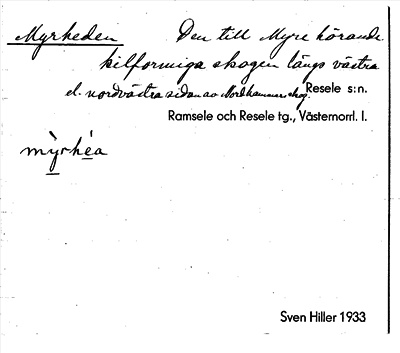 Myrheden Den till Myre hörande
kilformiga skogen längs västra
el. nordvästra sidan av Nordhammarskog. Resele s:n.
Ramsele och Resele tg., Västernorrl. l.
mỳrhéa
Sven Hiller 1933